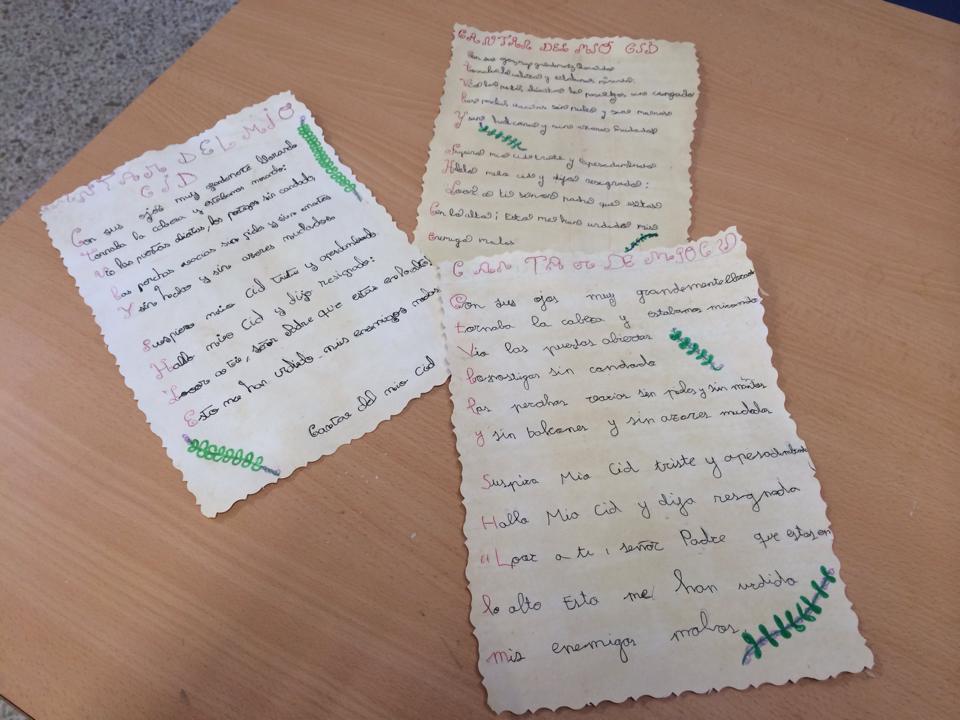 CANTAR DEL MIO
CID
Con sus ojos muy grandemente llorando
Tornaba la cabeza y estabamos mirando:
Vio las puertas abiertas, los postigos sin candado,
las perchas vacias sin pieles y sin mantos
Y sin halcones y sin azores mudados
Suspiro mio Cid triste y apesadumbrado
Hallo mio Cid y dijo resignado:
Loor a ti, señor Padre que estas en lo alto,
Esto me han urdido mis enemigos malos
Cantar del mio Cid
CANTAR DEL MIO CID
Con sus ojos grandemente llorando
Tornaba la cabeza y estabamos mirando:
Vio las puertas abiertas los postigos sin candado
las perchas vacias sin pieles y sin mantos
Y sin halcones y sin azores mudados
Suspiro mio cid triste y apesadumbrado
Hablo mio cid y dijo resignado:
Loor a ti señor padre que estas
En lo alto; Esto me han urdido mis
enemigo malos
CANTAR DE MIO CID
Con sus ojos muy grandemente llorando
tornaba la cabeza y estabamos mirando
Vio las puertas abiertas
los postigos sin candado
las perchas vacias sin pieles y sin mantos
y sin balcones y sin azores mudados
Suspira Mio Cid triste y apesadumbrado
Halla Mio Cid y dijo resignada
"Loor a ti, señor Padre que estas en
lo alto Esto me han urdido
mis enemigos malos